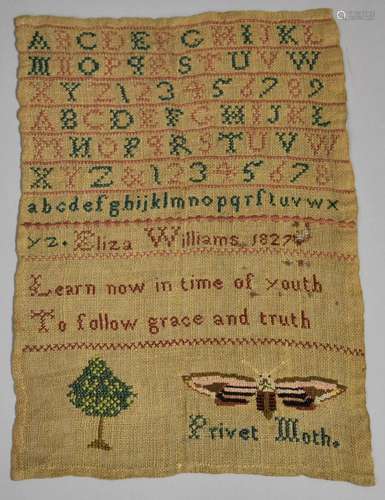 A B C D E F G H I J K L
M N O P Q R S T U V W
X Y Z 1 2 3 4 5 6 7 8 9
A B C D E F G H I J K L
M N O P Q R S T U V W
X Y Z & 1 2 3 4 5 6 7 8
a b c d e f g h i j k l m n o p q r s t u v w x
y z. Eliza Williams 1827
Learn now in time of youth
To follow grace and truth
Privet Moth.